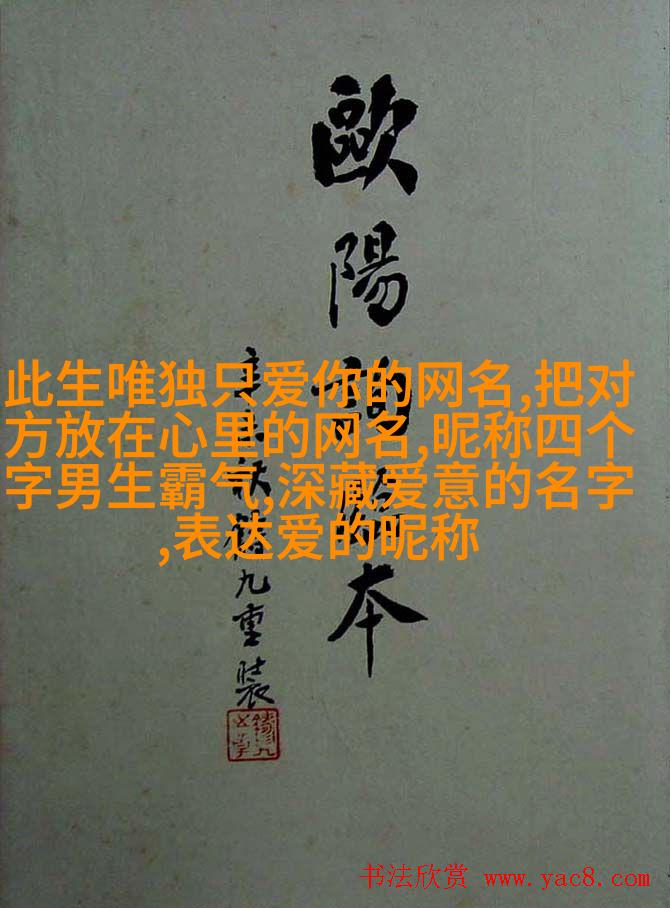 歐陽詢　本
辛　秋　九重裝
此生唯独只爱你的网名,把对
方放在心里的网名,昵称四个
字男生霸气,深藏爱意的名字
,表达爱的昵称
书法欣赏 www.yac8.com